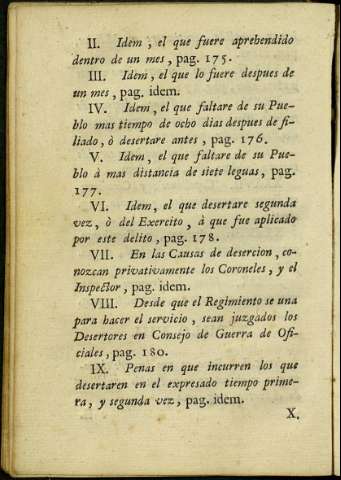 II. Idem, el que fuere aprehendido
dentro de un mes, pag. 175.
III. Idem, el que lo fuere despues de
un mes, pag. idem.
IV. Idem, el que faltare de su Pue-
blo mas tiempo de ocho dias despues de fi-
liado, ò desertare antes, pag. 176.
V. Idem, el que faltare de su Pue-
blo à mas distancia de siete leguas, pag.
177.
VI. Idem, el que desertare segunda
vez, ò del Exercito, à que fue aplicado
por este delito, pag. 178.
VII. En las Causas de desercion, co-
nozcan privativamente los Coroneles, y el
Inspector, pag. idem.
VIII. Desde que el Regimiento se una
para hacer el servicio, sean juzgados los
Desertores en Consejo de Guerra de Ofi-
ciales, pag. 180.
IX. Penas en que incurren los que
desertaren en el expresado tiempo prime-
ra, y segunda vez, pag. idem.
X.